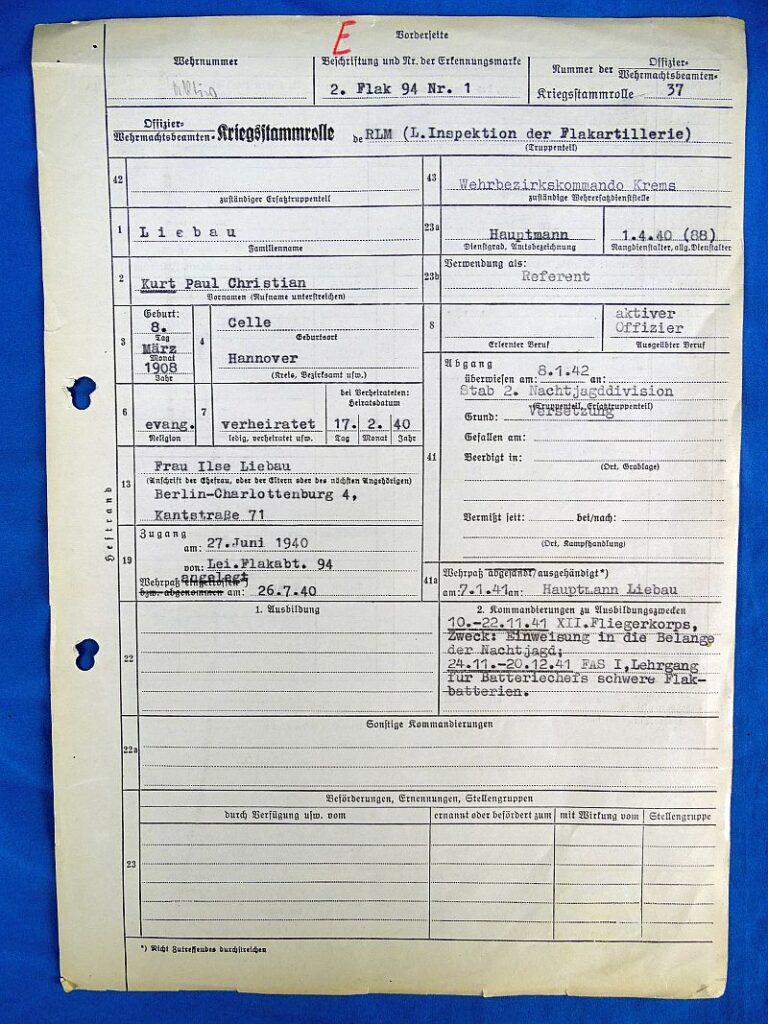 E
Vorderseite
Wehrnummer
Beschriftung und Nr. der Erkennungsmarke
2. Flak 94 Nr. 1
Nummer der Offizier- Wehrmachtsbeamten- Kriegsstammrolle 37
Offizier- Wehrmachtsbeamten- Kriegsstammrolle de RLM (L.Inspektion der Flakartillerie)
(Truppenteil)
42
zuständiger Ersatztruppenteil
43 Wehrbezirkskommando Krems
zuständige Wehrersatzdienststelle
1 Liebau
Familienname
23a Hauptmann 1.4.40 (88)
Dienstgrad, Amtsbezeichnung Rangdienstalter, allg. Dienstalter
2 Kurt Paul Christian
Vornamen (Rufname unterstreichen)
23b Verwendung als:
Referent
3 Geburt:
8.
Tag
März
Monat
1908
Jahr
4 Celle
Geburtsort
Hannover
(Kreis, Bezirksamt usw.)
8 aktiver
Offizier
Erlernter Beruf Ausgeübter Beruf
6 evang.
Religion
7 verheiratet
ledig, verheiratet usw.
bei Verheirateten:
Heiratsdatum
17. 2. 40
Tag Monat Jahr
41 Abgang
überwiesen am: 8.1.42 an:
Stab 2. Nachtjagddivision
(Truppenteil, Ersatztruppenteil)
Grund: Versetzung
Gefallen am:
Beerdigt in:
(Ort, Grablage)
Vermißt seit: bei/nach:
(Ort, Kampfhandlung)
13 Frau Ilse Liebau
(Anschrift der Ehefrau, oder der Eltern oder des nächsten Angehörigen)
Berlin-Charlottenburg 4,
Kantstraße 71
Heftrand
19 Zugang
am: 27.Juni 1940
von: Lei.Flakabt. 94
angelegt
Wehrpaß eingetroffen*)
bzw. abgenommen am: 26.7.40
41a Wehrpaß abgesandt/ausgehändigt*)
am: 7.1.41 an: Hauptmann Liebau
22 1. Ausbildung
2. Kommandierungen zu Ausbildungszwecken
10.-22.11.41 XII.Fliegerkorps,
Zweck: Einweisung in die Belange
der Nachtjagd;
24.11.-20.12.41 FAS I,Lehrgang
für Batteriechefs schwere Flak-
batterien.
22a Sonstige Kommandierungen
23 Beförderungen, Ernennungen, Stellengruppen
durch Verfügung usw. vom ernannt oder befördert zum mit Wirkung vom Stellengruppe
*) Nicht Zutreffendes durchstreichen